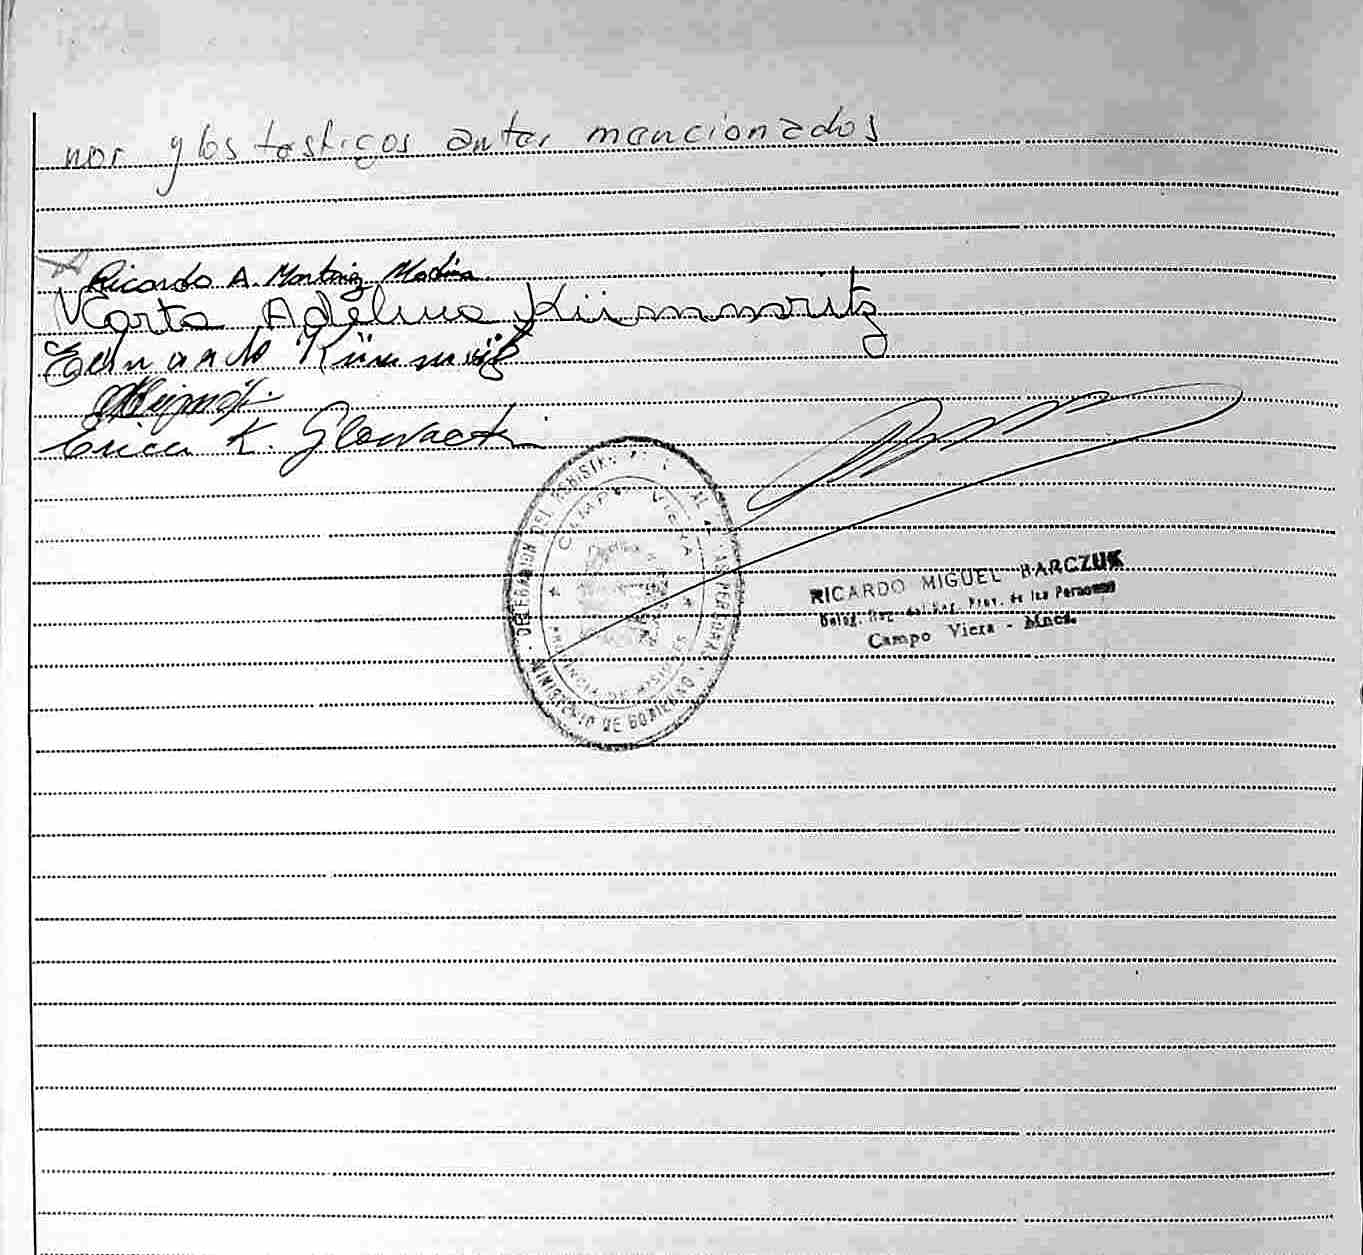 nor y los testigos antes mencionados
Ricardo A. Modina
Marta Adelina Kümmritz
Kümmritz
Erica K. Glowacki
DELEGACION DEL REGISTRO DE LAS PERSONAS
CAMPO VIERA
PROVINCIA DE MISIONES
MINISTERIO DE GOBIERNO
RICARDO MIGUEL BARCZUK
Deleg. del Reg. Prov. de las Personas
Campo Viera - Mnes.